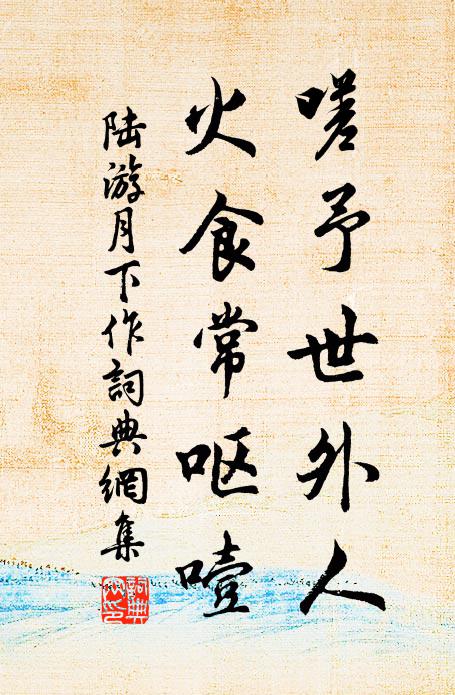 嗟予世外人
火食常呕噎
陆游月下作詞典網集